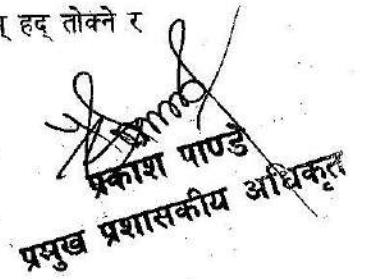 ् हद् तोक्ने र
प्रकाश पाण्डे
प्रमुख प्रशासकीय अधिकृत